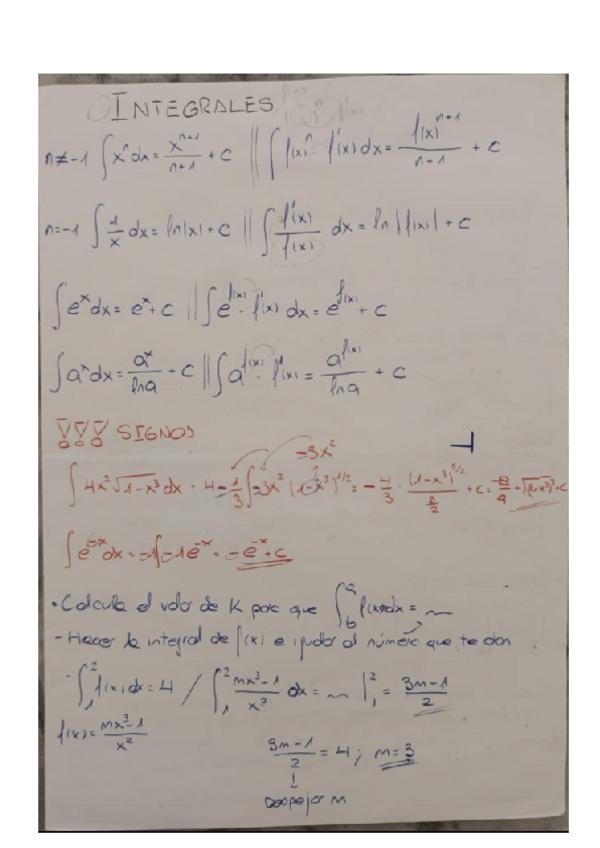 INTEGRALES
n≠-1 ∫xⁿdx = xⁿ⁺¹/n+1 + C || ∫f(x)ⁿ · f'(x)dx = f(x)ⁿ⁺¹/n+1 + C
n=-1 ∫1/x dx = ln|x| + C || ∫f'(x)/f(x) dx = ln|f(x)| + C
∫eˣdx = eˣ + C || ∫e^f(x) · f'(x) dx = e^f(x) + C
∫aˣdx = aˣ/lna + C || ∫a^f(x) · f'(x) = a^f(x)/lna + C
!!! SIGNOS
-3x²
∫4x²√1-x³ dx = 4·-1/3∫-3x²(1-x³)^1/2 = -4/3 ·
∫e⁻ˣdx = -1∫-1e⁻ˣ = -e⁻ˣ + C
• Calcula el valor de K para que ∫ f(x)dx =
- Hacer la integral de f(x) e igualar al número que te dan
∫₁² f(x)dx = 4 / ∫₁² mx³-1/x² dx = |₁² = 3m-1/2
f(x) = mx³-1/x²
3m-1/2 = 4; m=3
↓
Despejar m